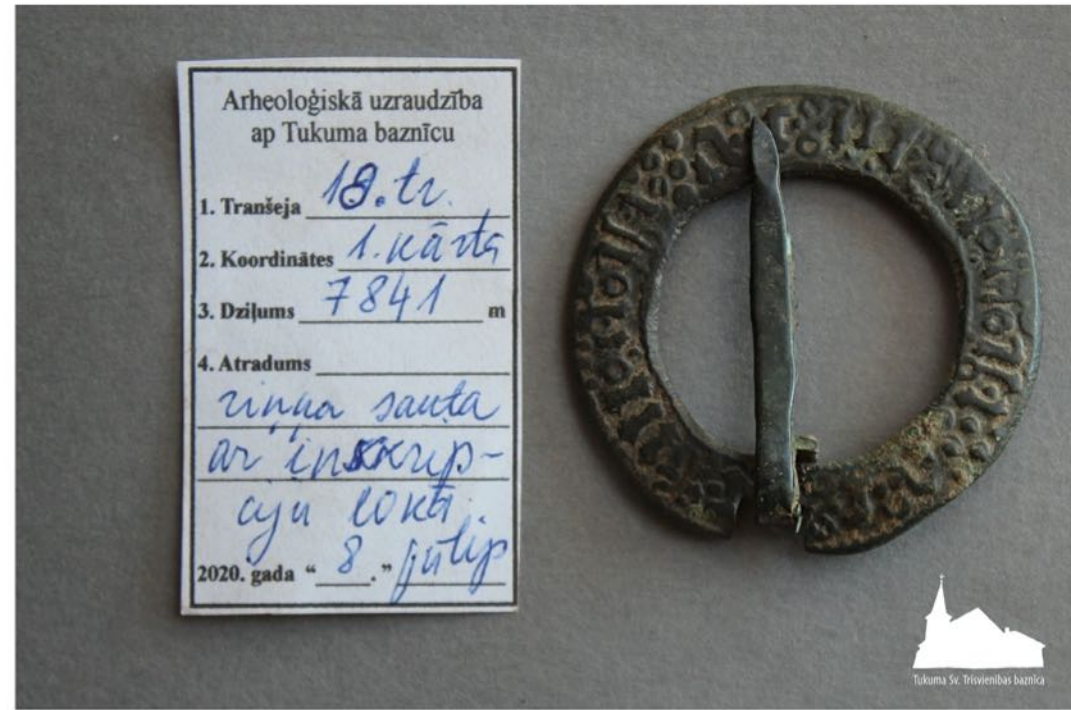 Arheoloģiskā uzraudzība
ap Tukuma baznīcu
1. Tranšeja 18. tr.
2. Koordinātes 1. kārta
3. Dziļums 7841 m
4. Atradums
riņķa sauta
ar inskrip-
ciju lokā.
2020. gada “ 8. ” jūlijs
Tukuma Sv. Trīsvienības baznīca